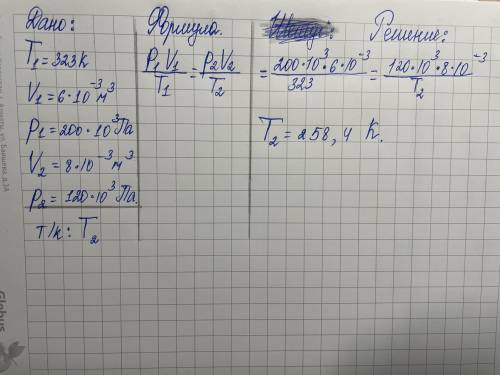 Дано:
T₁ = 323 К
V₁ = 6 · 10⁻³ м³
P₁ = 200 · 10³ Па
V₂ = 8 · 10⁻³ м³
P₂ = 120 · 10³ Па.
т/к: T₂
Формула.
P₁V₁/T₁ = P₂V₂/T₂
Решение:
= 200·10³·6·10⁻³/323 = 120·10³·8·10⁻³/T₂
T₂ = 258,4 К.
Globus